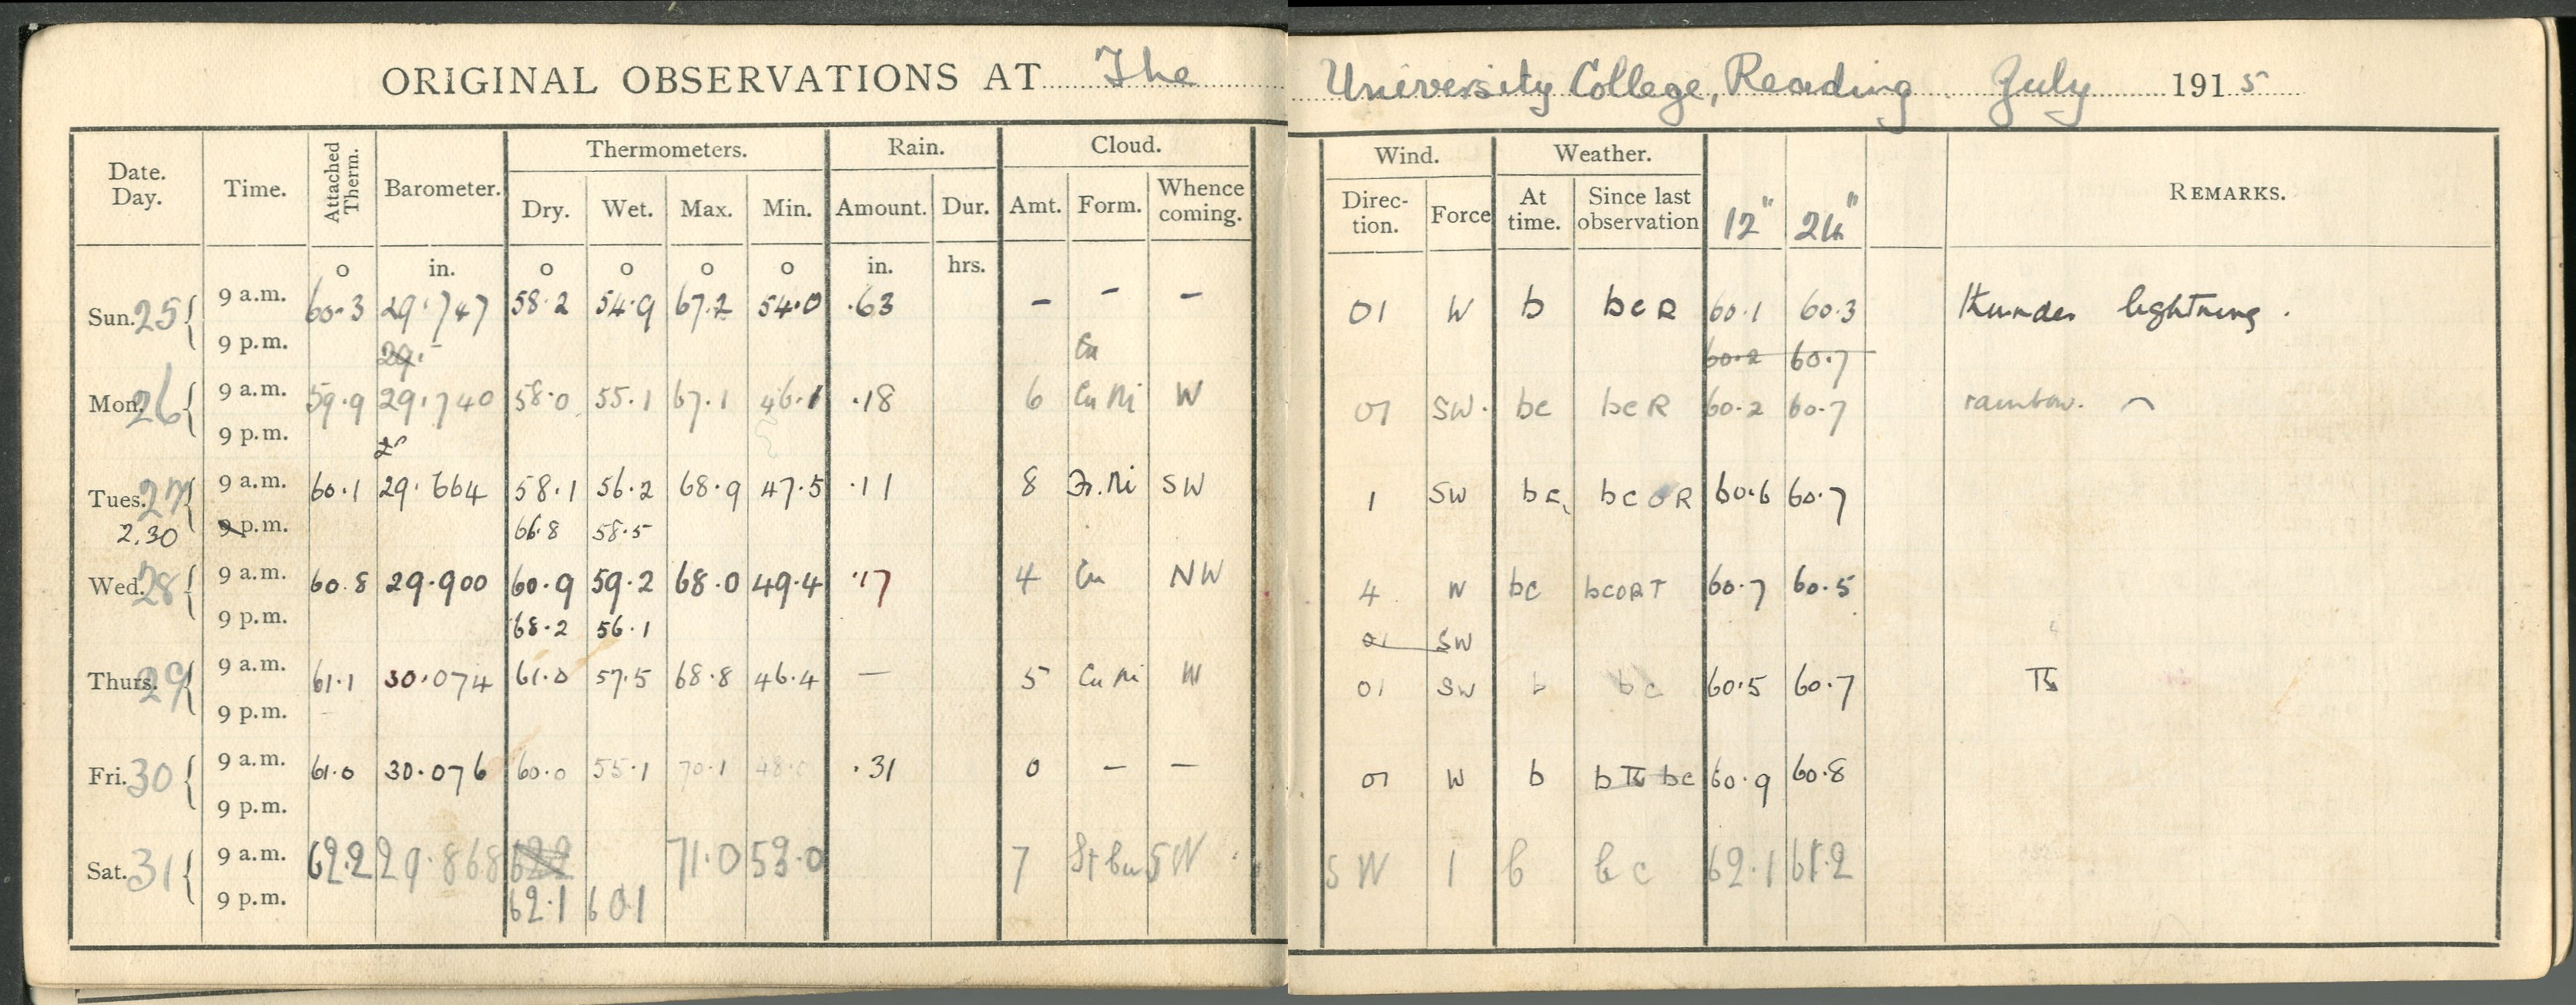 ORIGINAL OBSERVATIONS AT The University College, Reading. July 1915
Date. Day. Time. Attached Therm. Barometer. Thermometers. Rain. Cloud. Wind. Weather. 12" 24" REMARKS.
Dry. Wet. Max. Min. Amount. Dur. Amt. Form. Whence coming. Direc- tion. Force At time. Since last observation
o in. o o o o in. hrs.
Sun. 25 9 a.m. 60.3 29.747 58.2 54.9 67.2 54.0 .63 – – – 01 W b bcR 60.1 60.3 thunder lightning.
9 p.m. 29. Cu 60.2 60.7
Mon. 26 9 a.m. 59.9 29.740 58.0 55.1 67.1 46.1 .18 6 Cu Ni W 01 SW. bc bcR 60.2 60.7 rainbow. ⌒
9 p.m.
Tues. 27 9 a.m. 60.1 29.664 58.1 56.2 68.9 47.5 .11 8 Fr.Ni SW 1 SW bc, bcoR 60.6 60.7
2.30 9 p.m. 66.8 58.5
Wed. 28 9 a.m. 60.8 29.900 60.9 59.2 68.0 49.4 .17 4 Cu NW 4 W bc bcoRT 60.7 60.5
9 p.m. 68.2 56.1 01 SW
Thurs. 29 9 a.m. 61.1 30.074 61.0 57.5 68.8 46.4 — 5 Cu Ni W 01 SW b bc 60.5 60.7
9 p.m.
Fri. 30 9 a.m. 61.0 30.076 60.0 55.1 70.1 48.5 .31 0 – – 01 W b b bc 60.9 60.8
9 p.m.
Sat. 31 9 a.m. 62.2 29.868 71.0 53.0 7 St Cu SW SW 1 b bc 62.1 61.2
9 p.m. 62.1 60.1